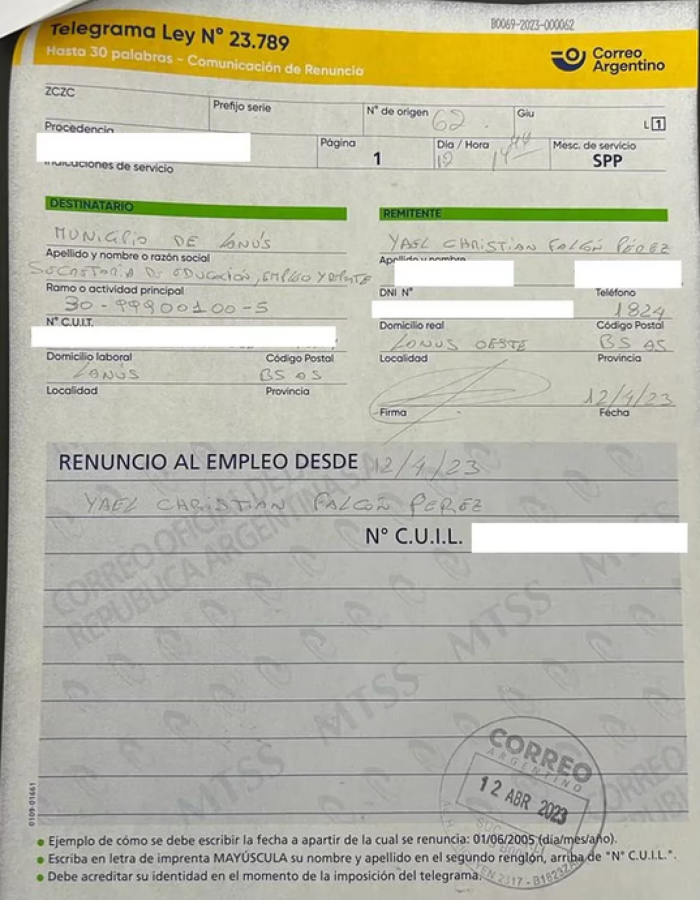 B0069-2023-000062
Telegrama Ley N° 23.789
Hasta 30 palabras - Comunicación de Renuncia
Correo
Argentino
ZCZC
Prefijo serie
N° de origen 62
Giu
L 1
Procedencia
Página
1
Día / Hora
12
Mesc. de servicio
SPP
Indicaciones de servicio
DESTINATARIO
MUNICIPIO DE LANÚS
Apellido y nombre o razón social
SECRETARIA DE EDUCACIÓN, EMPLEO Y DEPORTE
Ramo o actividad principal
30-99900100-5
N° C.U.I.T.
Domicilio laboral
Código Postal
LANÚS
BS AS
Localidad
Provincia
REMITENTE
YAEL CHRISTIAN FALCÓN PÉREZ
Apellido y nombre
DNI N°
Teléfono
1824
Domicilio real
Código Postal
LANUS OESTE
BS AS
Localidad
Provincia
12/4/23
Firma
Fecha
RENUNCIO AL EMPLEO DESDE 12/4/23
YAEL CHRISTIAN FALCÓN PEREZ
N° C.U.I.L.
CORREO OFICIAL DE LA
REPUBLICA ARGENTINA S.A.
MTSS
MTSS
MTSS
CORREO
ARGENTINO
12 ABR 2023
0109-01661
• Ejemplo de cómo se debe escribir la fecha a apartir de la cual se renuncia: 01/06/2005 (día/mes/año).
• Escriba en letra de imprenta MAYÚSCULA su nombre y apellido en el segundo renglón, arriba de "N° C.U.I.L.".
• Debe acreditar su identidad en el momento de la imposición del telegrama.